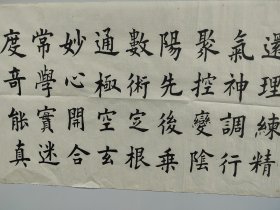 還理練精
氣神調行
聚控變陰
陽先後乘
數術定根
通極空玄
妙心開合
常學實迷
度奇能真